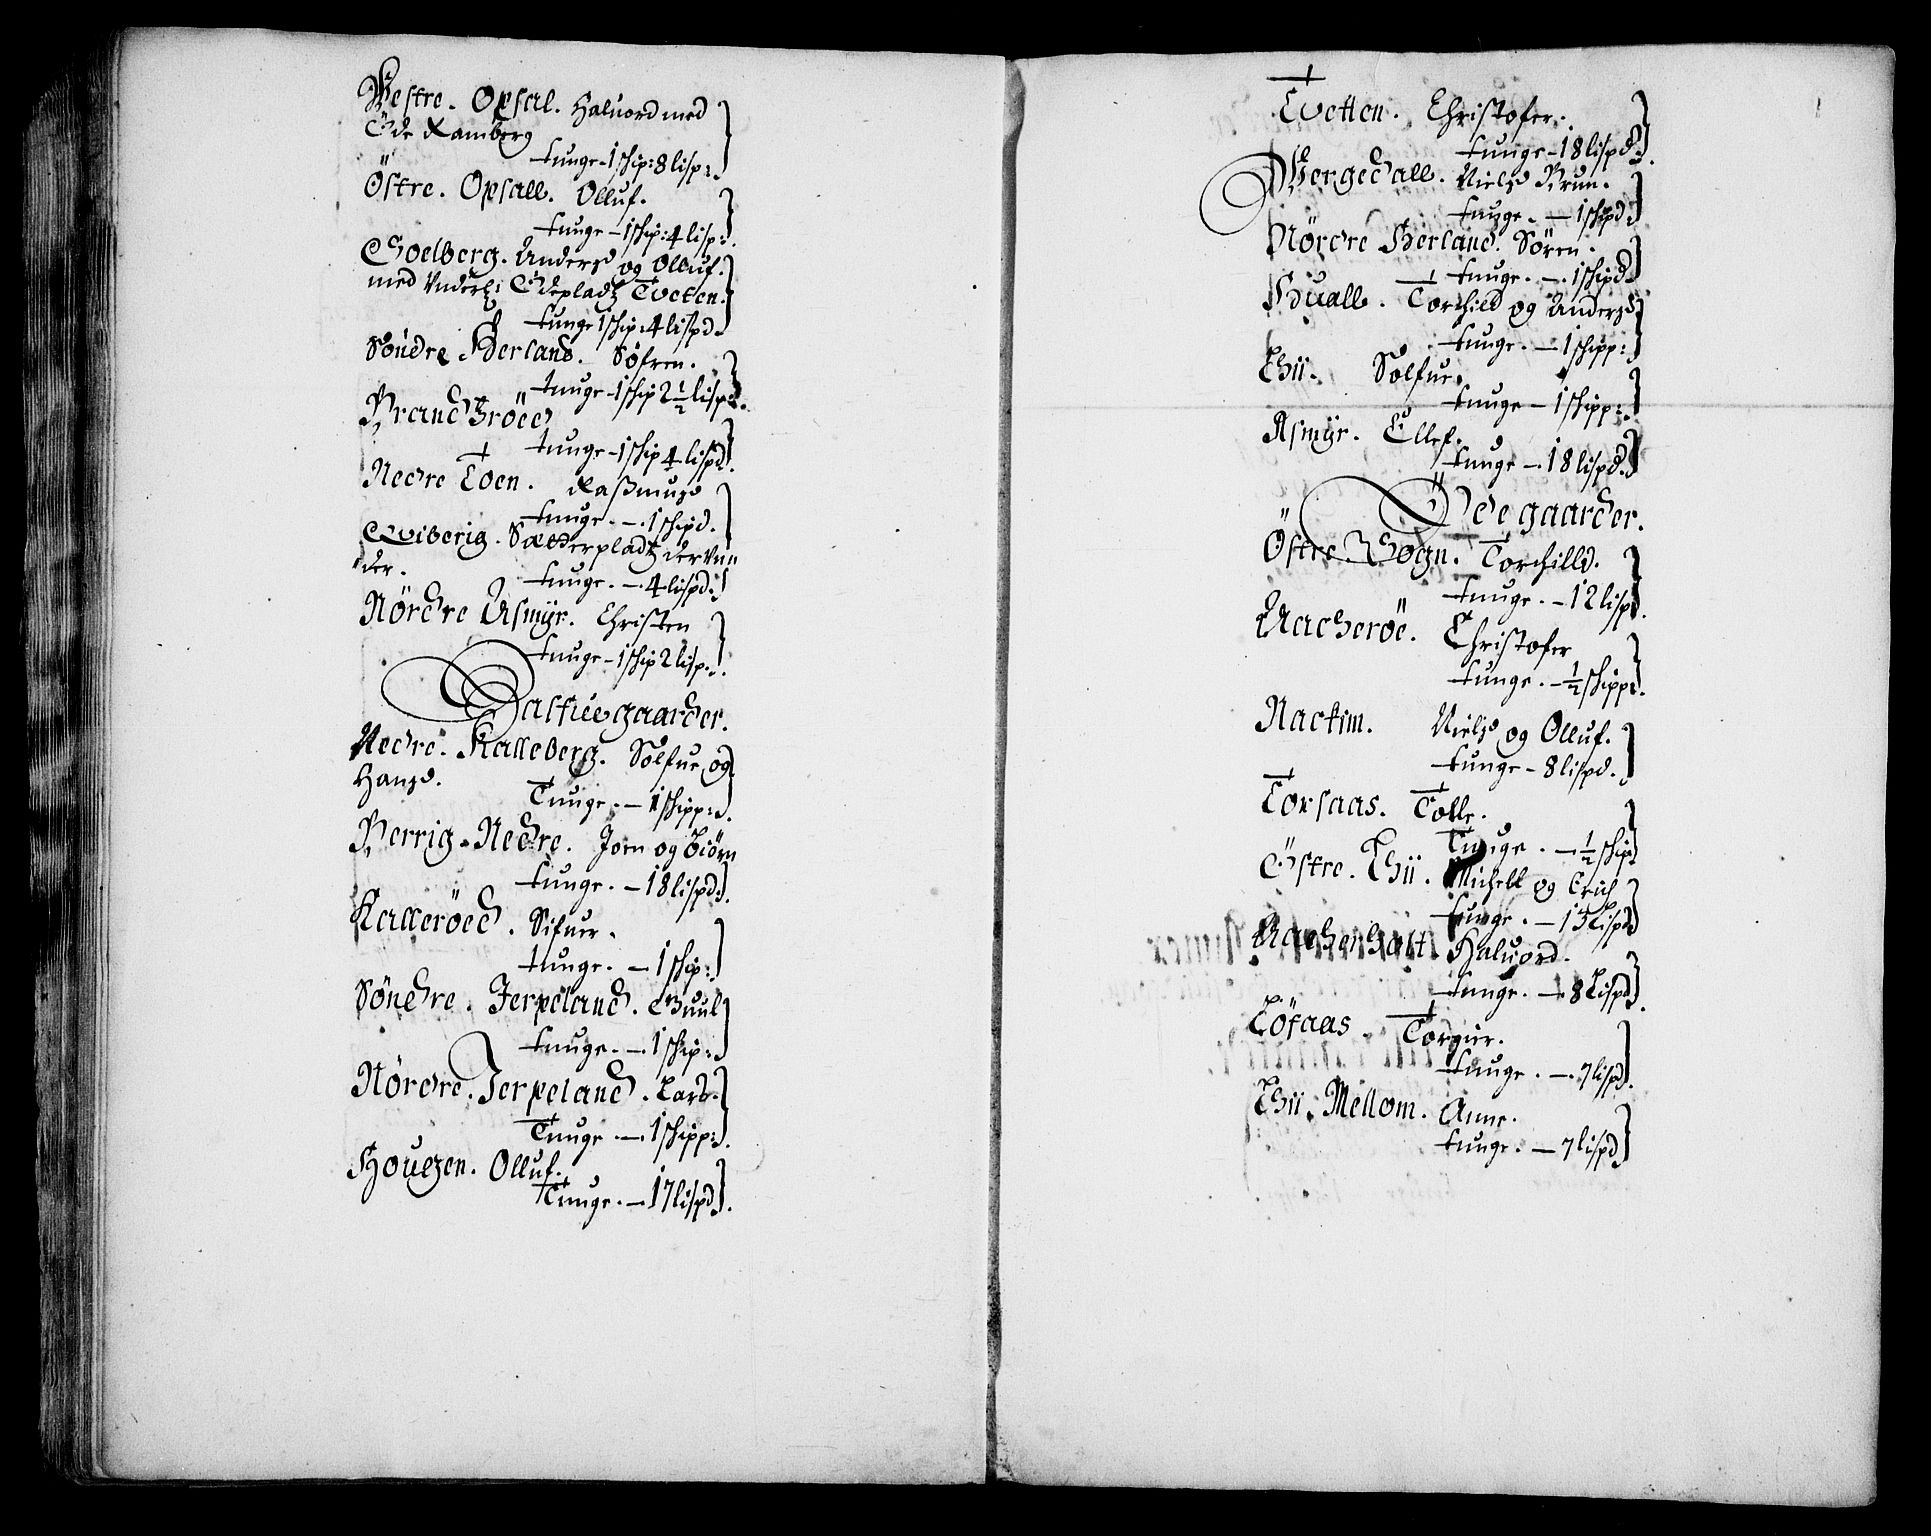 Westre. Opsal. Haluord med
Öde Ramberg
tunge - 1 schip: 8 lisp:
Östre. Opsall. Olluf.
tunge - 1 schip: 4 lisp:
Goelberg. Anders og Olluf.
med Underl: Ödepladtz Tveten.
tunge 1 schip: 4 lispd.
Söndre Herland. Söfren.
tunge - 1 schip 2 1/2 lisp:
Brandzröed
tunge - 1 schip 4 lispd.
Nedre Toen. Rasmus
tunge. - 1 schipd.
Qviberig. Sætterpladtz der Un„
„der.
tunge. - 4 lispd.
Nördre Asmyr. Christen
tunge - 1 schip 2 lisp:
Halfuegaarder.
Nedre. Kalleberg. Solfue og
Hans.
Tunge. - 1 schipp:
Berrig. Nedre. Joen og Biörn
tunge. - 18 lispd.
Kalleröed. Sifuer.
tunge. - 1 schip:
Söndre. Jerpeland. Guul
tunge. - 1 schip:
Nördre. Jerpeland. Lars.
Tunge. - 1 schipp:
Houezen. Olluf.
Tunge. - 17 lispd.
Tvetten. Christofer.
tunge - 18 lispd.
Bergedall. Niels Brun.
tunge. - 1 schipd.
Nördre Herland. Sören.
tunge. - 1 schipd.
Huall. Torchild og Anders
tunge. - 1 schipp:
Lii. Solfue.
tunge - 1 schipp:
Asmyr. Ellef.
tunge - 18 lispd.
Ödegaarder.
Östre Sogn. Torchilld.
tunge. - 12 lispd.
Aacheröe. Christofer
tunge. - 1/2 schipp:
Nackim. Niels og Olluf.
tunge - 8 lispd.
Torsaas. Tolle.
Tunge. - 1/2 schip:
Östre. Lii. Michell og Erich
tunge. - 13 Lispd.
Aachenholt. Haluord.
tunge. - 8 Lispd.
Löfaas. Torgier.
tunge. - 7 lispd.
Lii. Mellom. Anne.
tunge. - 7 lispd.